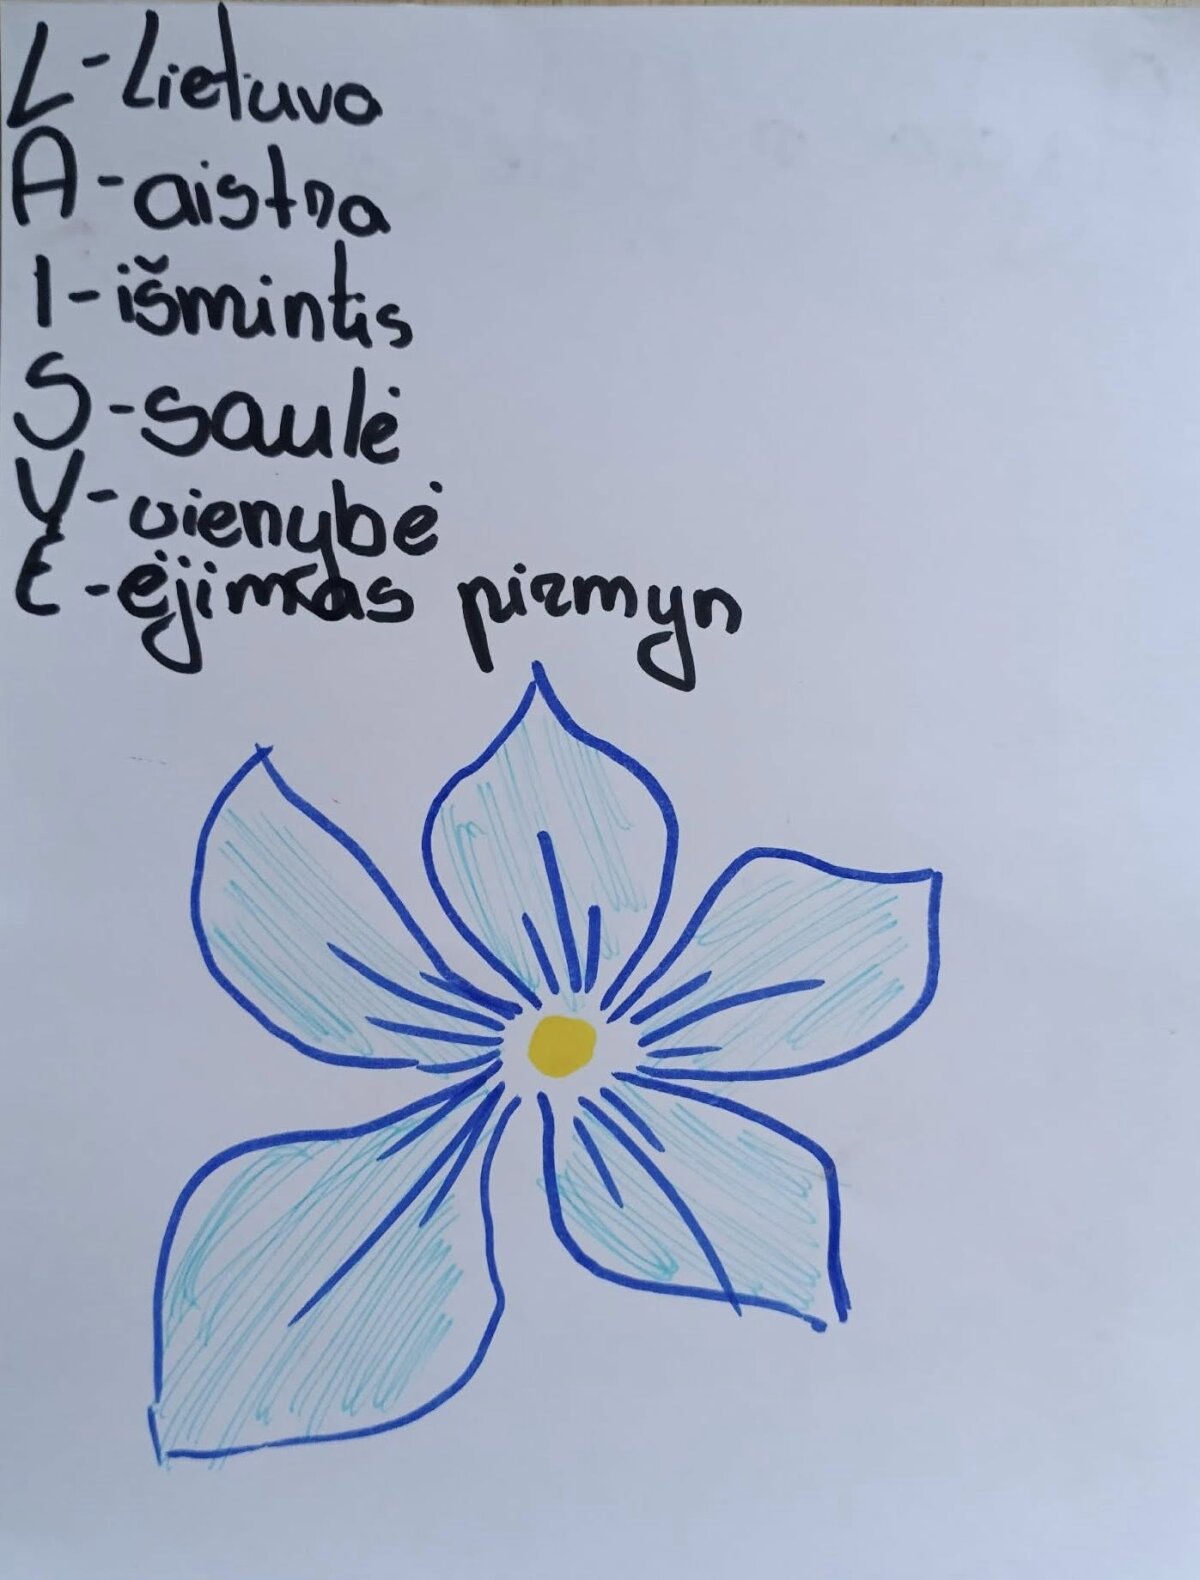 L-Lietuva
A-aistra
I-išmintis
S-saulė
V-vienybė
Ė-ėjimas pirmyn